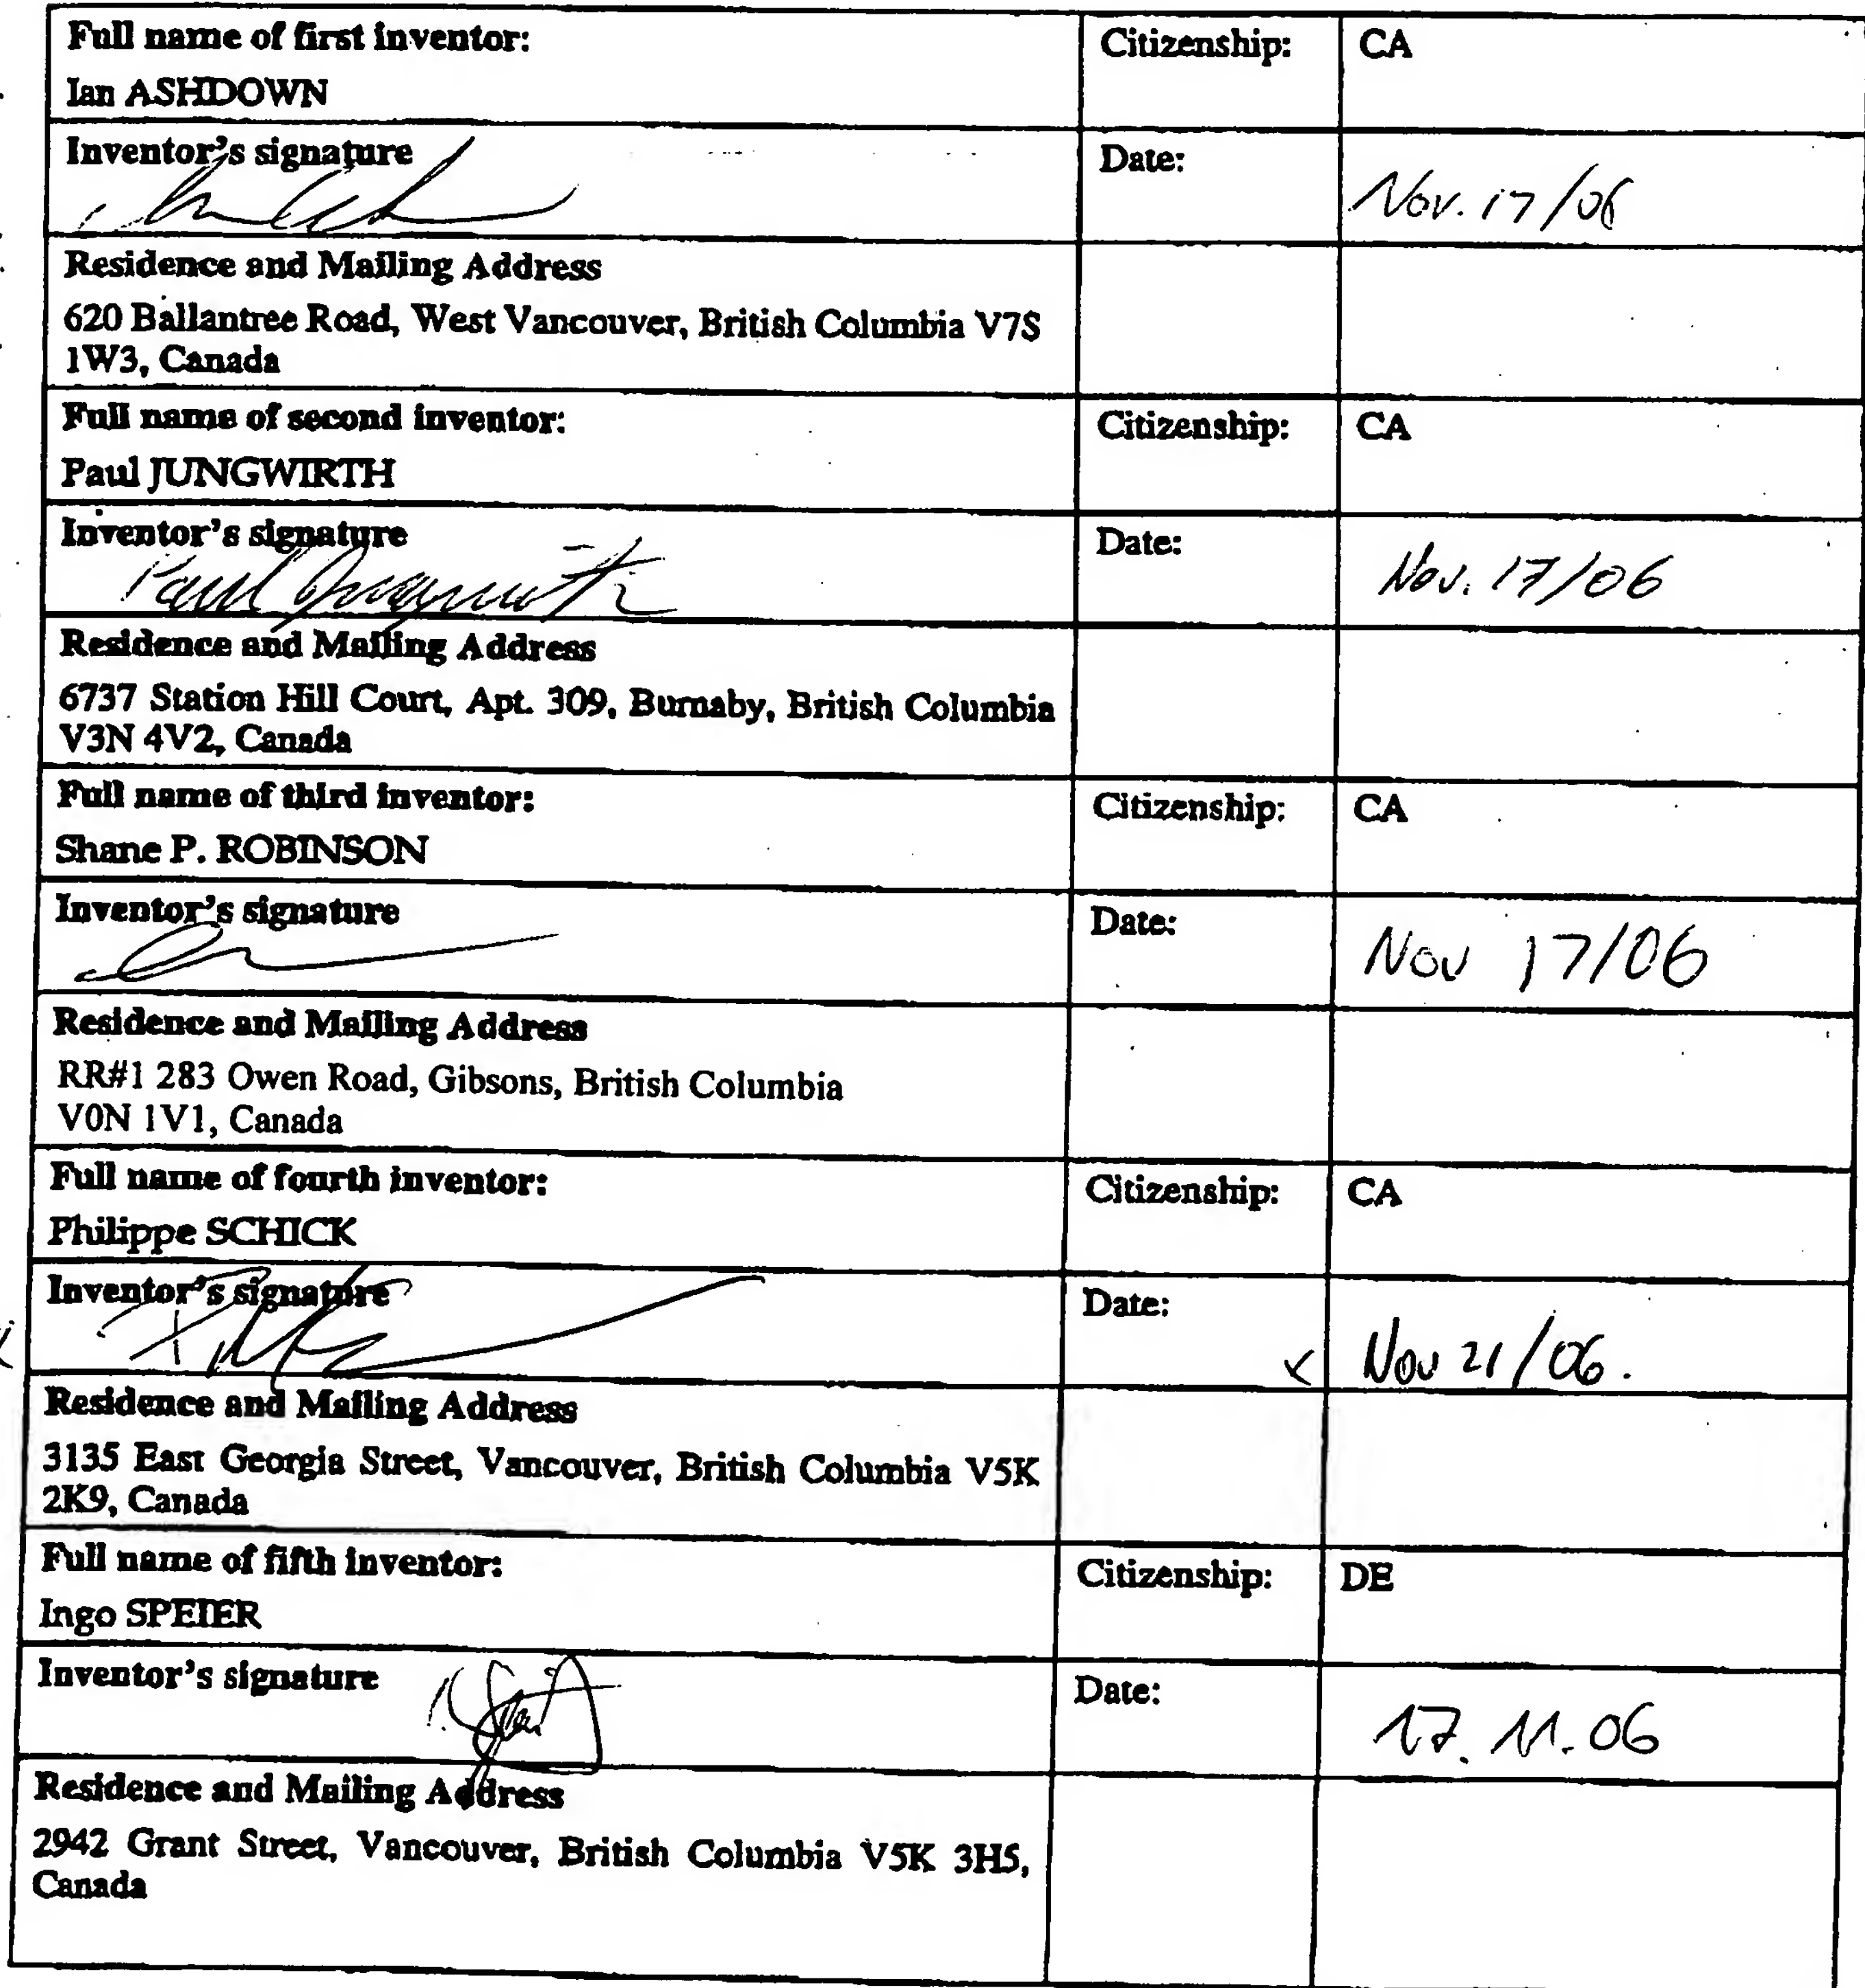 Full name of first inventor: Citizenship: CA
Ian ASHDOWN
Inventor's signature Date: Nov. 17/06
Residence and Mailing Address
620 Ballantree Road, West Vancouver, British Columbia V7S
1W3, Canada
Full name of second inventor: Citizenship: CA
Paul JUNGWIRTH
Inventor's signature Date: Nov. 17/06
Paul Jungwirth
Residence and Mailing Address
6737 Station Hill Court, Apt. 309, Burnaby, British Columbia
V3N 4V2, Canada
Full name of third inventor: Citizenship: CA
Shane P. ROBINSON
Inventor's signature Date: Nov 17/06
Residence and Mailing Address
RR#1 283 Owen Road, Gibsons, British Columbia
V0N 1V1, Canada
Full name of fourth inventor: Citizenship: CA
Philippe SCHICK
Inventor's signature Date: x Nov 21/06.
Residence and Mailing Address
3135 East Georgia Street, Vancouver, British Columbia V5K
2K9, Canada
Full name of fifth inventor: Citizenship: DE
Ingo SPEIER
Inventor's signature Date: 17.11.06
Residence and Mailing Address
2942 Grant Street, Vancouver, British Columbia V5K 3H5,
Canada